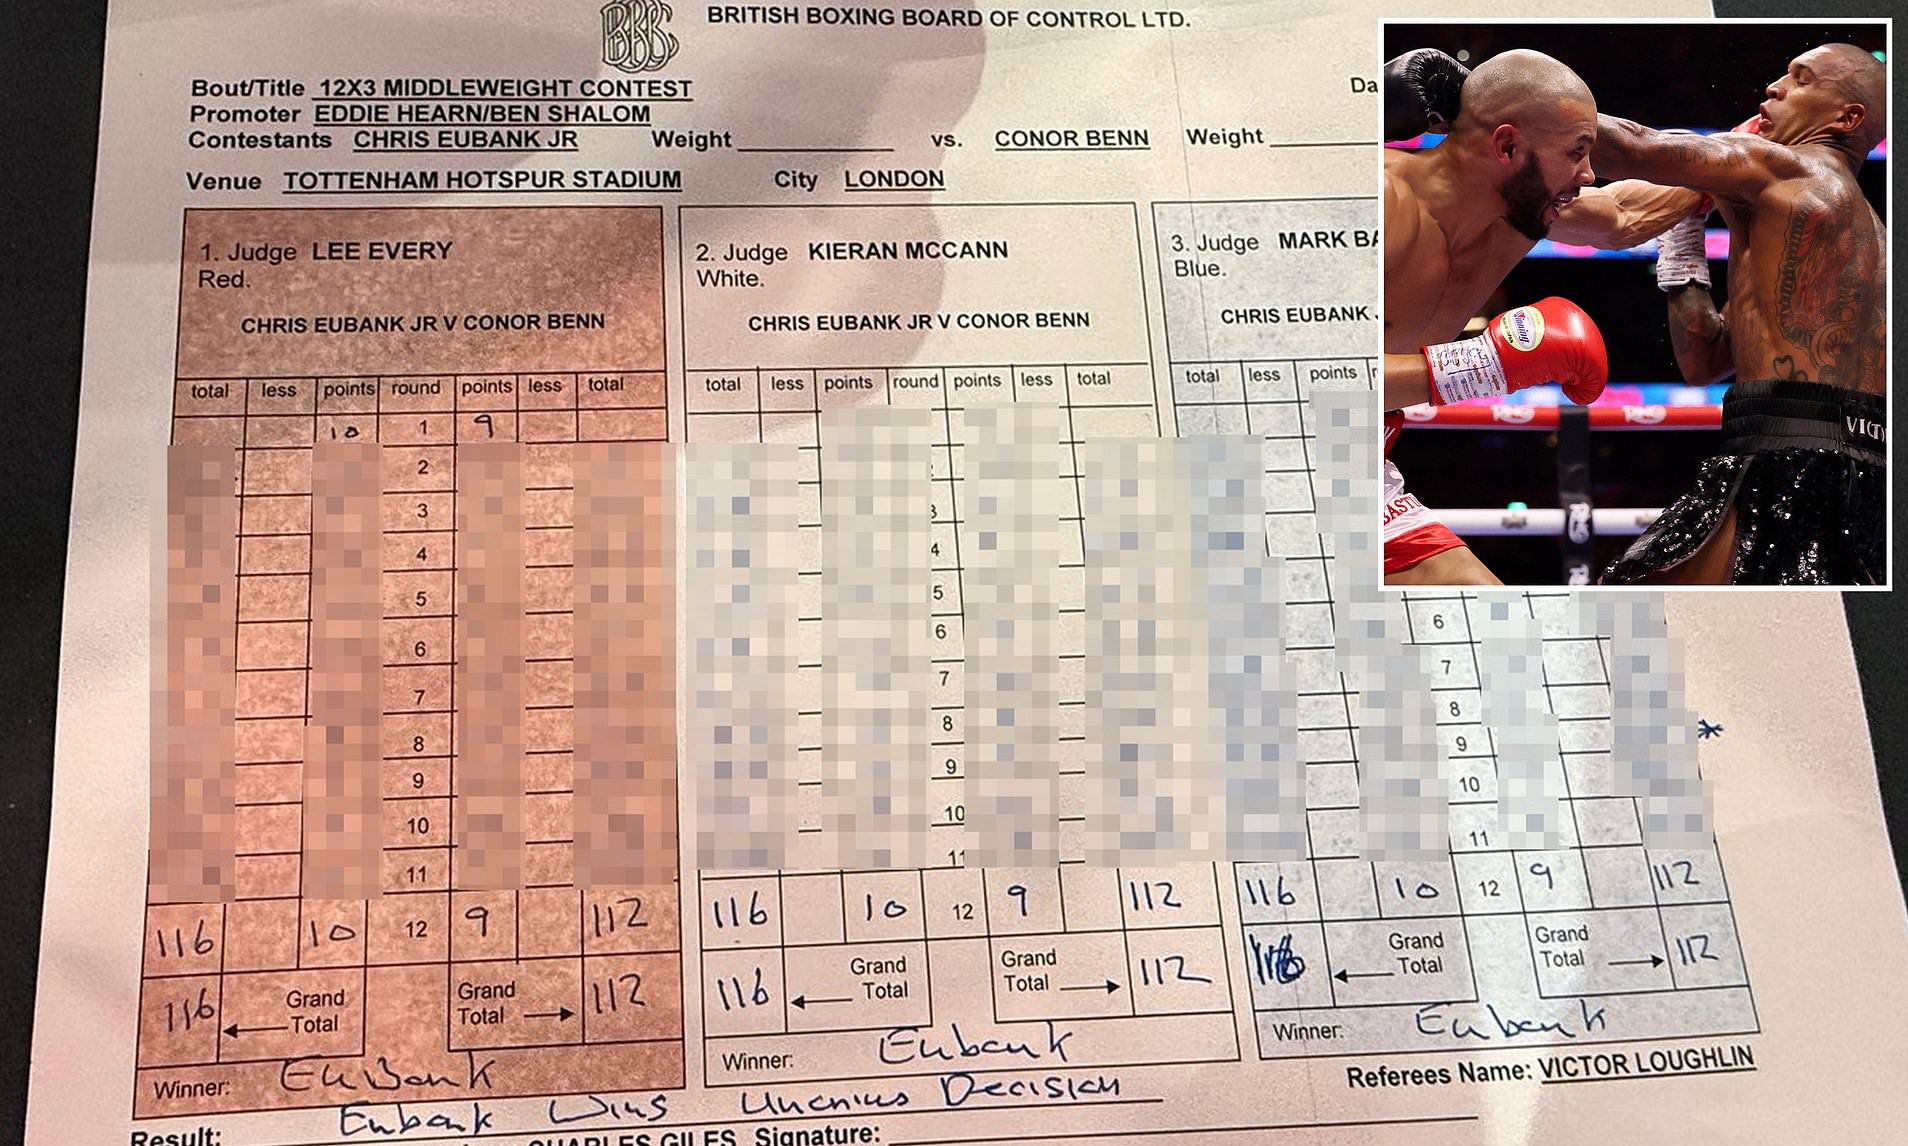 BBBC
BRITISH BOXING BOARD OF CONTROL LTD.
Bout/Title 12X3 MIDDLEWEIGHT CONTEST
Da
Promoter EDDIE HEARN/BEN SHALOM
Contestants CHRIS EUBANK JR Weight vs. CONOR BENN Weight
Venue TOTTENHAM HOTSPUR STADIUM City LONDON
1. Judge LEE EVERY
Red.
CHRIS EUBANK JR V CONOR BENN
total less points round points less total
10 1 9
2
3
4
5
6
7
8
9
10
11
116 10 12 9 112
116 Grand Total Grand Total 112
Winner: EuBank
2. Judge KIERAN MCCANN
White.
CHRIS EUBANK JR V CONOR BENN
total less points round points less total
3
4
5
6
7
8
9
10
11
116 10 12 9 112
116 Grand Total Grand Total 112
Winner: Eubank
3. Judge MARK BA
Blue.
CHRIS EUBANK J
total less points r
6
7
8
9 *
10
11
116 10 12 9 112
116 Grand Total Grand Total 112
Winner: Eubank
Referees Name: VICTOR LOUGHLIN
Result: Eubank Wins Unanius Decision
CHARLES GILES Signature:
Winning
VICT
BAST